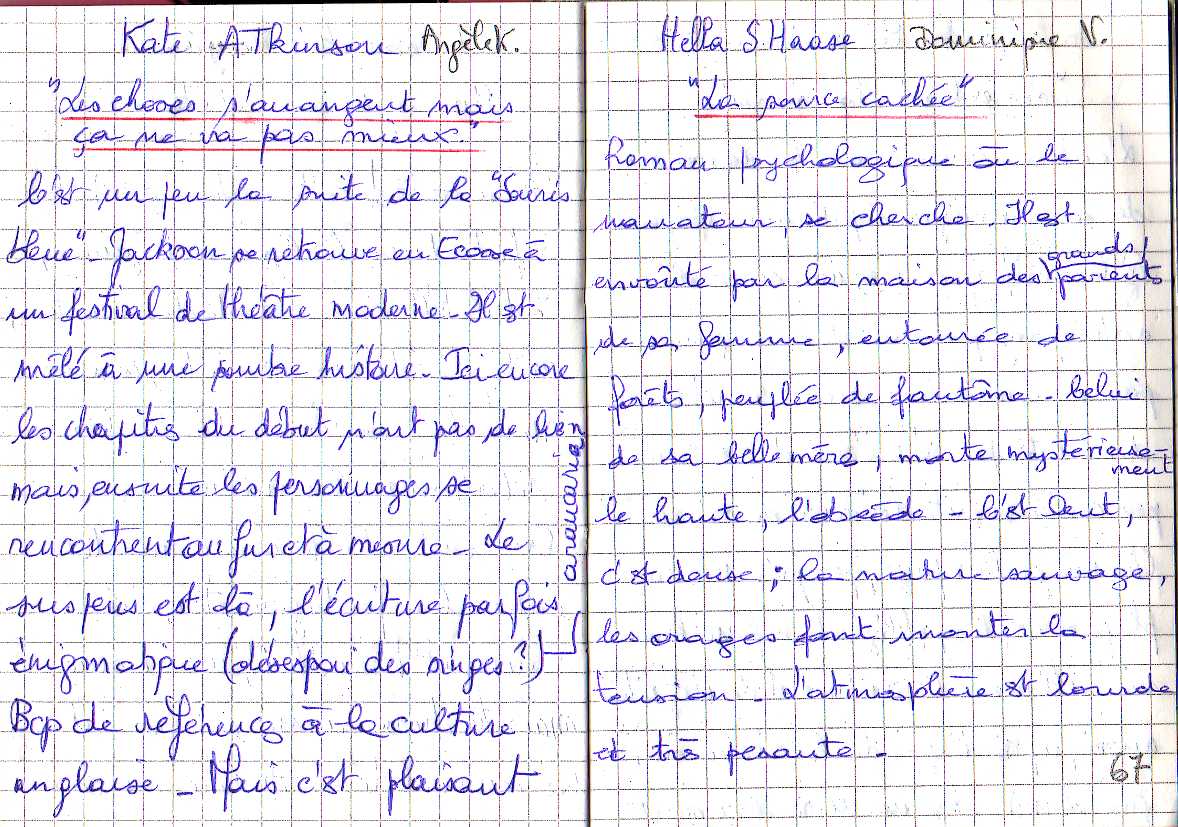 Kate ATkinson Angèle K.
"Les choses s'arrangent mais
ça ne va pas mieux."
C'est un peu la suite de la "Souris
bleue" - Jackson se retrouve en Ecosse à
un festival de théâtre moderne - Il est
mêlé à une sombre histoire - Ici encore
les chapitres du début n'ont pas de lien
mais, ensuite les personnages se
rencontrent au fur et à mesure - Le
suspens est là, l'écriture parfois
énigmatique (désespoir des singes ?)
araucaria
Bcp de références à la culture
anglaise - Mais c'est plaisant
Hella S Haase Dominique V.
"La source cachée"
Roman psychologique où le
narrateur, se cherche. Il est
envoûté par la maison des grands parents
de sa femme, entourée de
forêts, peuplée de fantôme - Celui
de sa belle mère, morte mystérieusement
le hante, l'obsède - C'est lent,
c'est dense ; la nature sauvage,
les orages font monter la
tension - L'atmosphère est lourde
et très pesante -
67